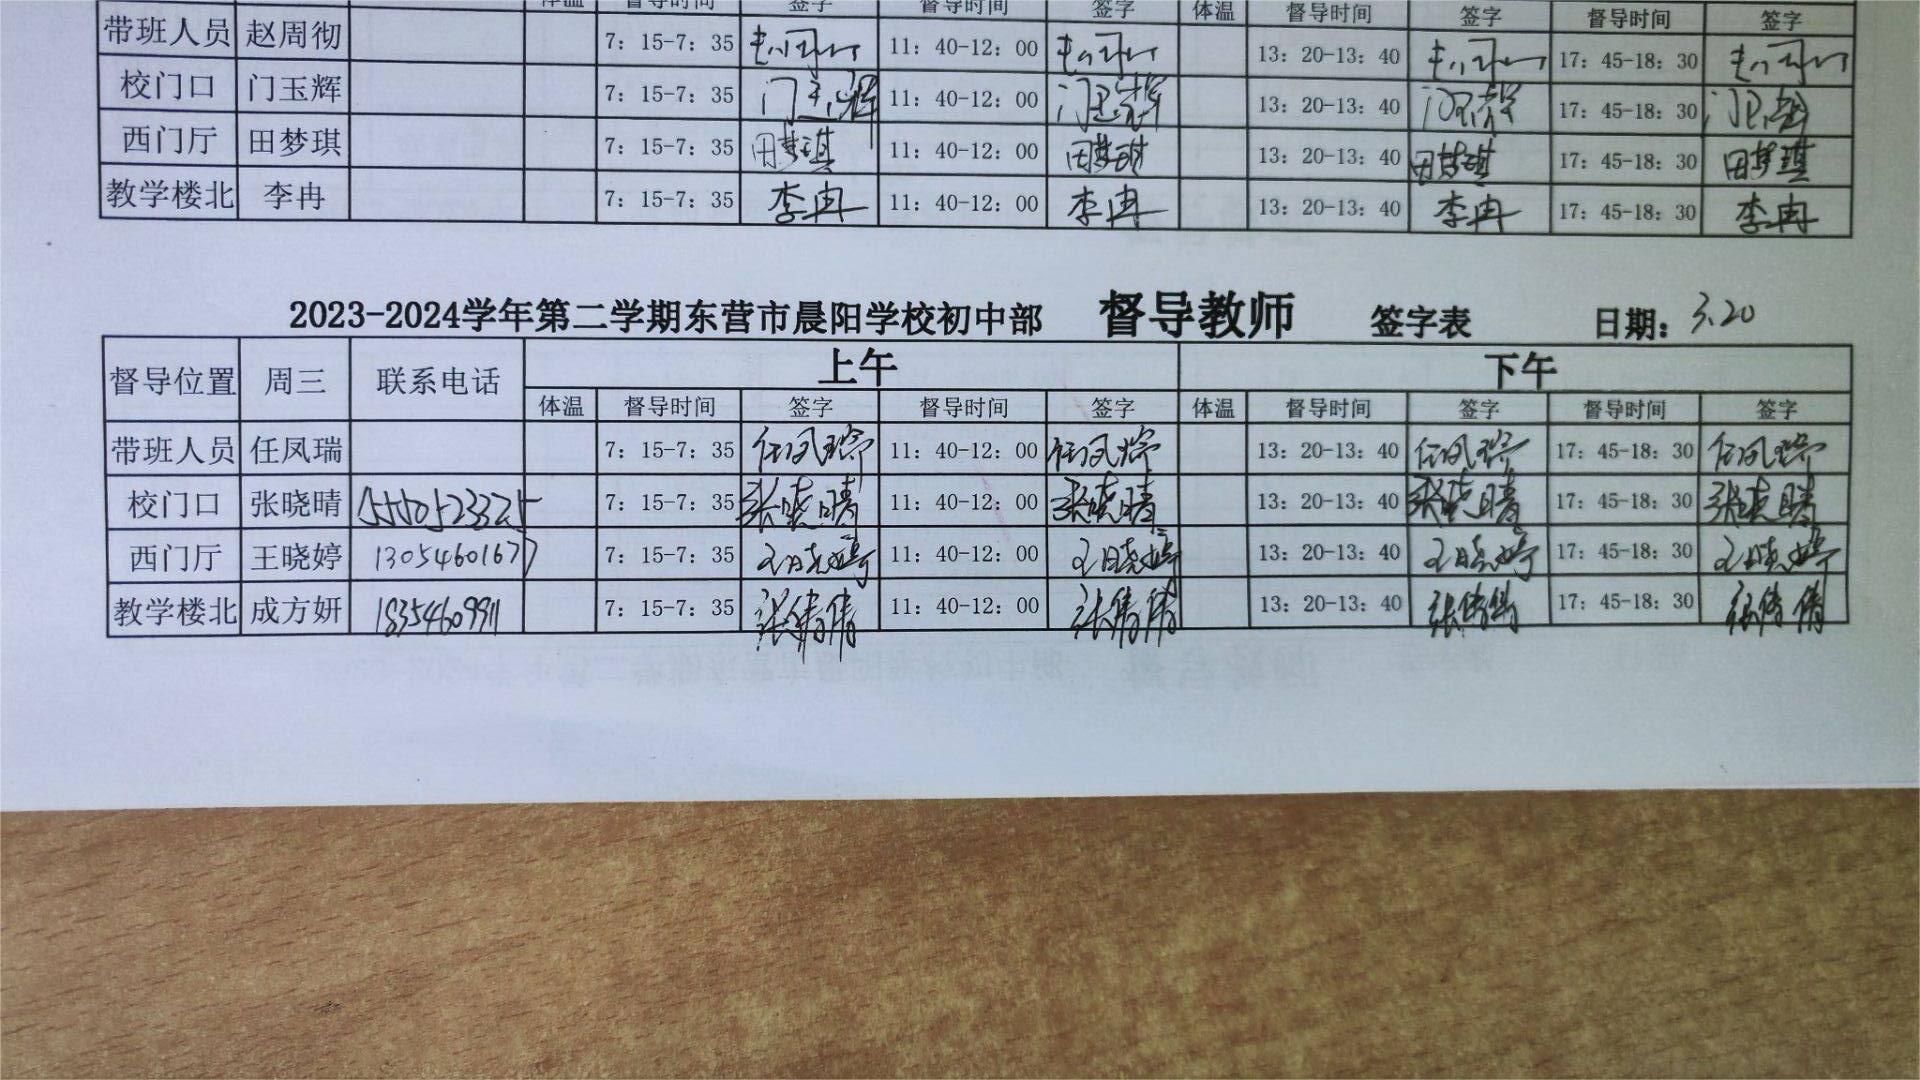 体温 督导时间 签字 督导时间 签字 体温 督导时间 签字 督导时间 签字
带班人员 赵周彻 7：15-7：35 11：40-12：00 13：20-13：40 17：45-18：30
校门口 门玉辉 7：15-7：35 门玉辉 11：40-12：00 门玉辉 13：20-13：40 门玉辉 17：45-18：30 门玉辉
西门厅 田梦琪 7：15-7：35 田梦琪 11：40-12：00 田梦琪 13：20-13：40 田梦琪 17：45-18：30 田梦琪
教学楼北 李冉 7：15-7：35 李冉 11：40-12：00 李冉 13：20-13：40 李冉 17：45-18：30 李冉
2023-2024学年第二学期东营市晨阳学校初中部 督导教师 签字表 日期：3.20
督导位置 周三 联系电话 上午 下午
体温 督导时间 签字 督导时间 签字 体温 督导时间 签字 督导时间 签字
带班人员 任凤瑞 7：15-7：35 任凤瑞 11：40-12：00 任凤瑞 13：20-13：40 任凤瑞 17：45-18：30 任凤瑞
校门口 张晓晴 7：15-7：35 张晓晴 11：40-12：00 张晓晴 13：20-13：40 张晓晴 17：45-18：30 张晓晴
西门厅 王晓婷 13054601677 7：15-7：35 王晓婷 11：40-12：00 王晓婷 13：20-13：40 王晓婷 17：45-18：30 王晓婷
教学楼北 成方妍 18354609911 7：15-7：35 张倩倩 11：40-12：00 张倩倩 13：20-13：40 张倩倩 17：45-18：30 张倩倩